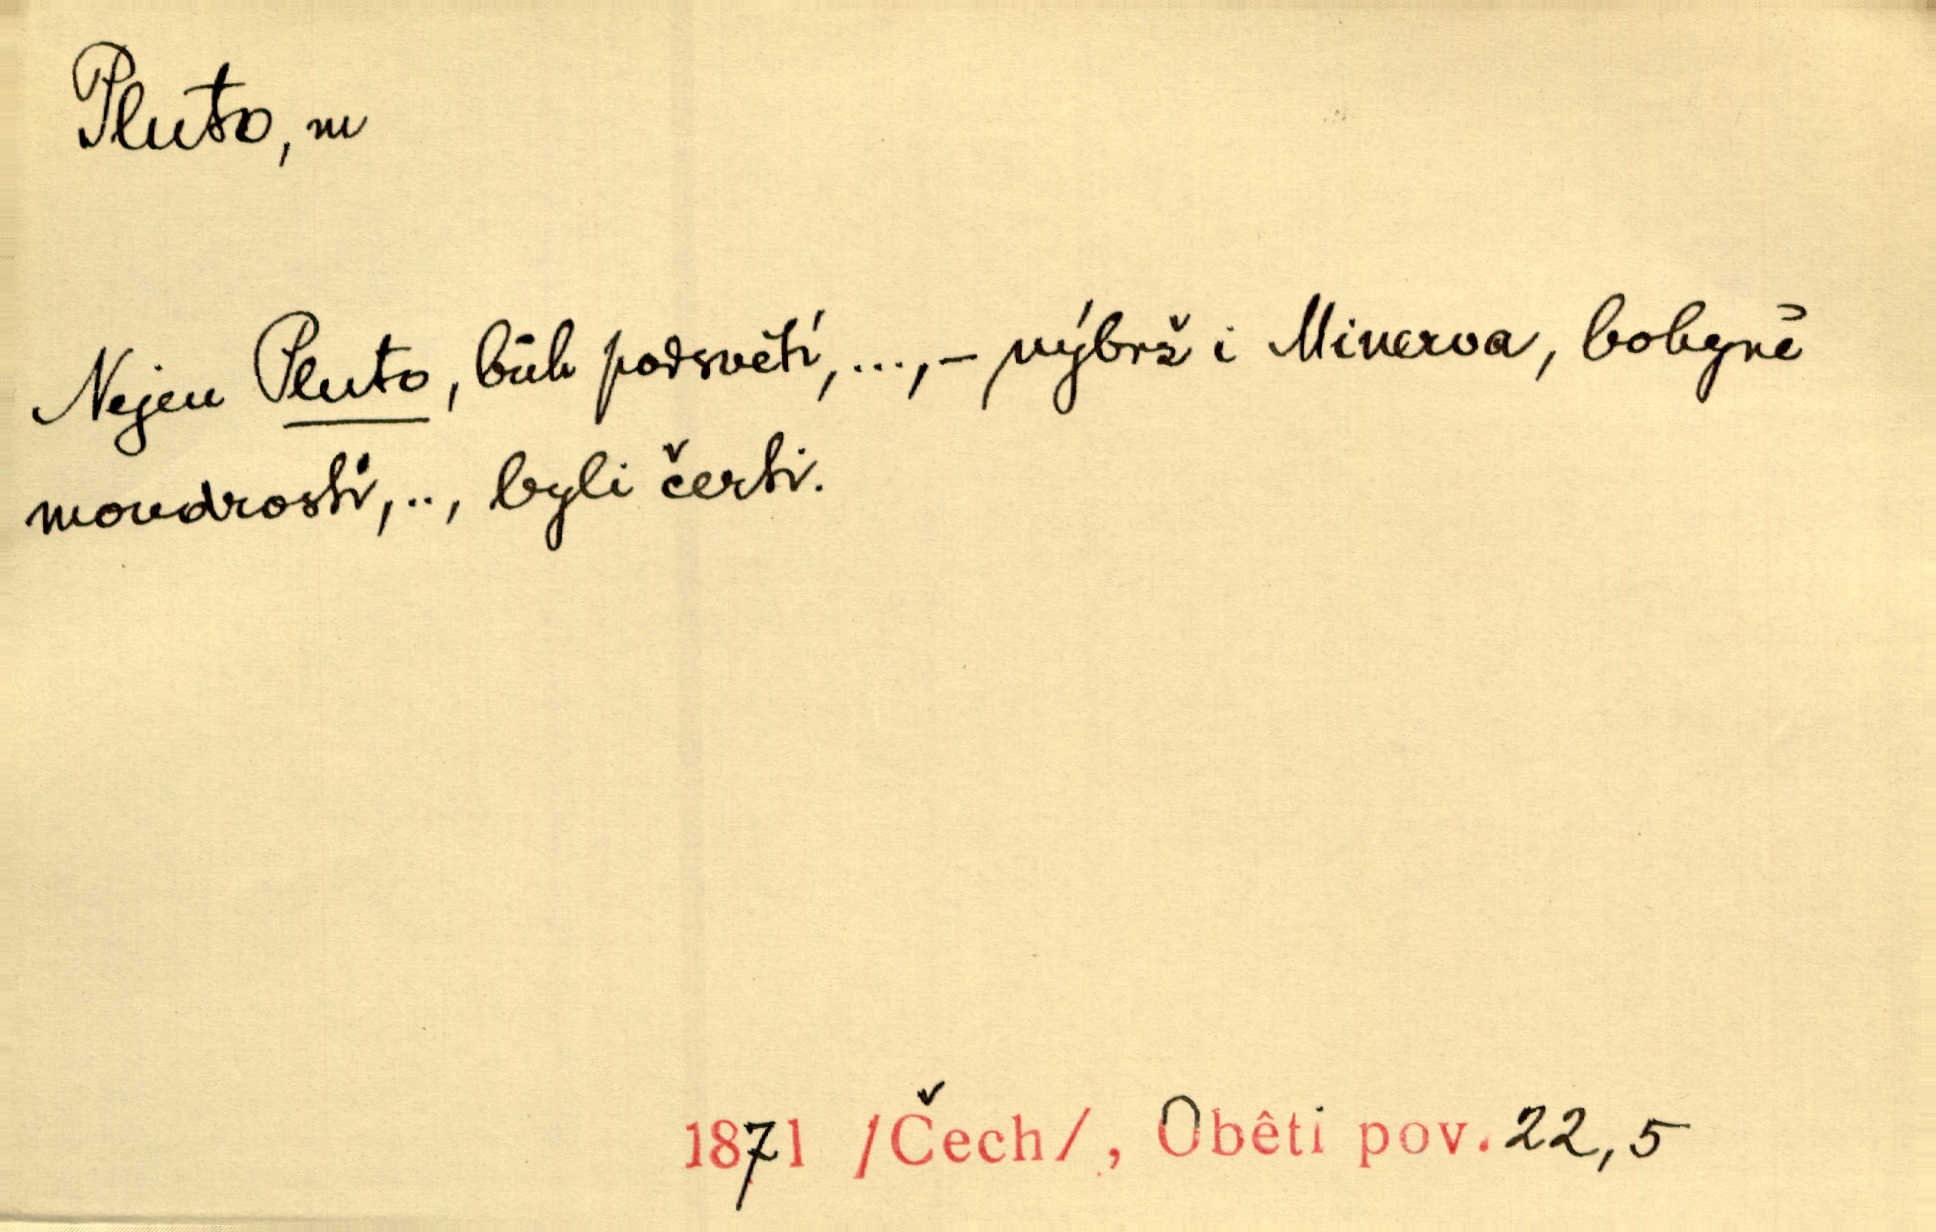 Pluto, m
Nejen Pluto, bůh podsvětí, ..., – nýbrž i Minerva, bohyně
moudrosti, .., byli čerti.
1871 /Čech/, Oběti pov. 22, 5